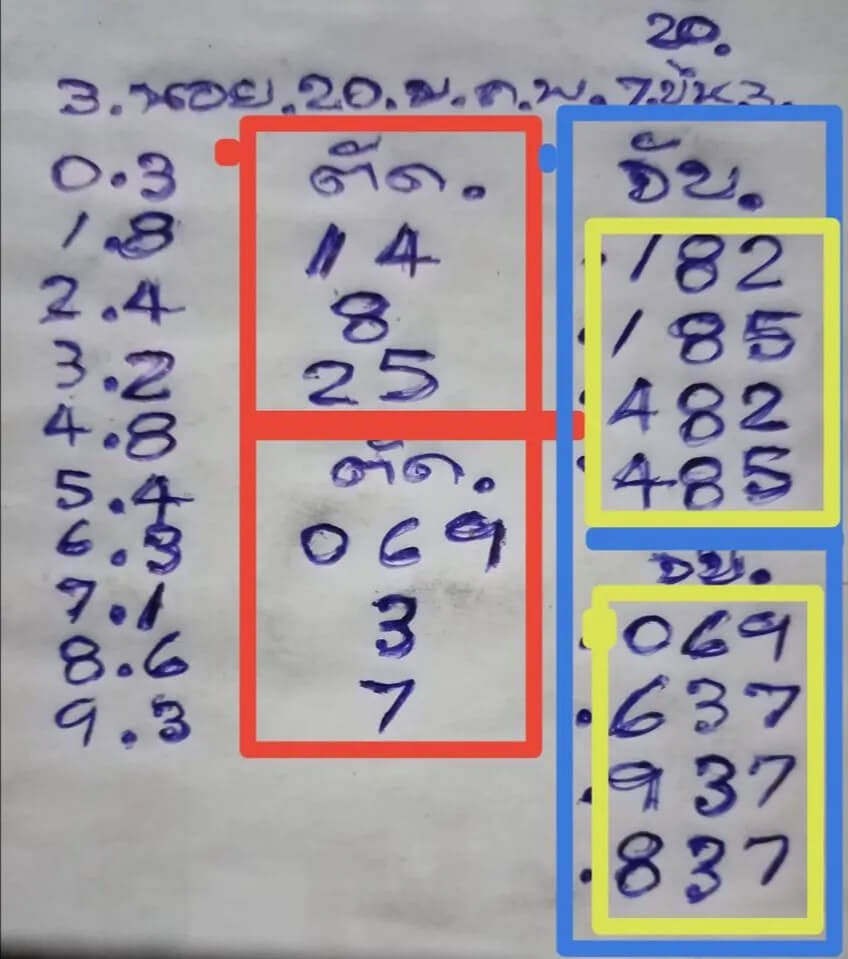 20.
3.หอย.20.ม.ค.พ.7.ขึ้น3.
0.3
1.8
2.4
3.2
4.8
5.4
6.3
7.1
8.6
9.3
ตัด.
14
8
25
ตัด.
069
3
7
จับ.
.182
.185
.482
.485
จับ.
.069
.637
.937
.837